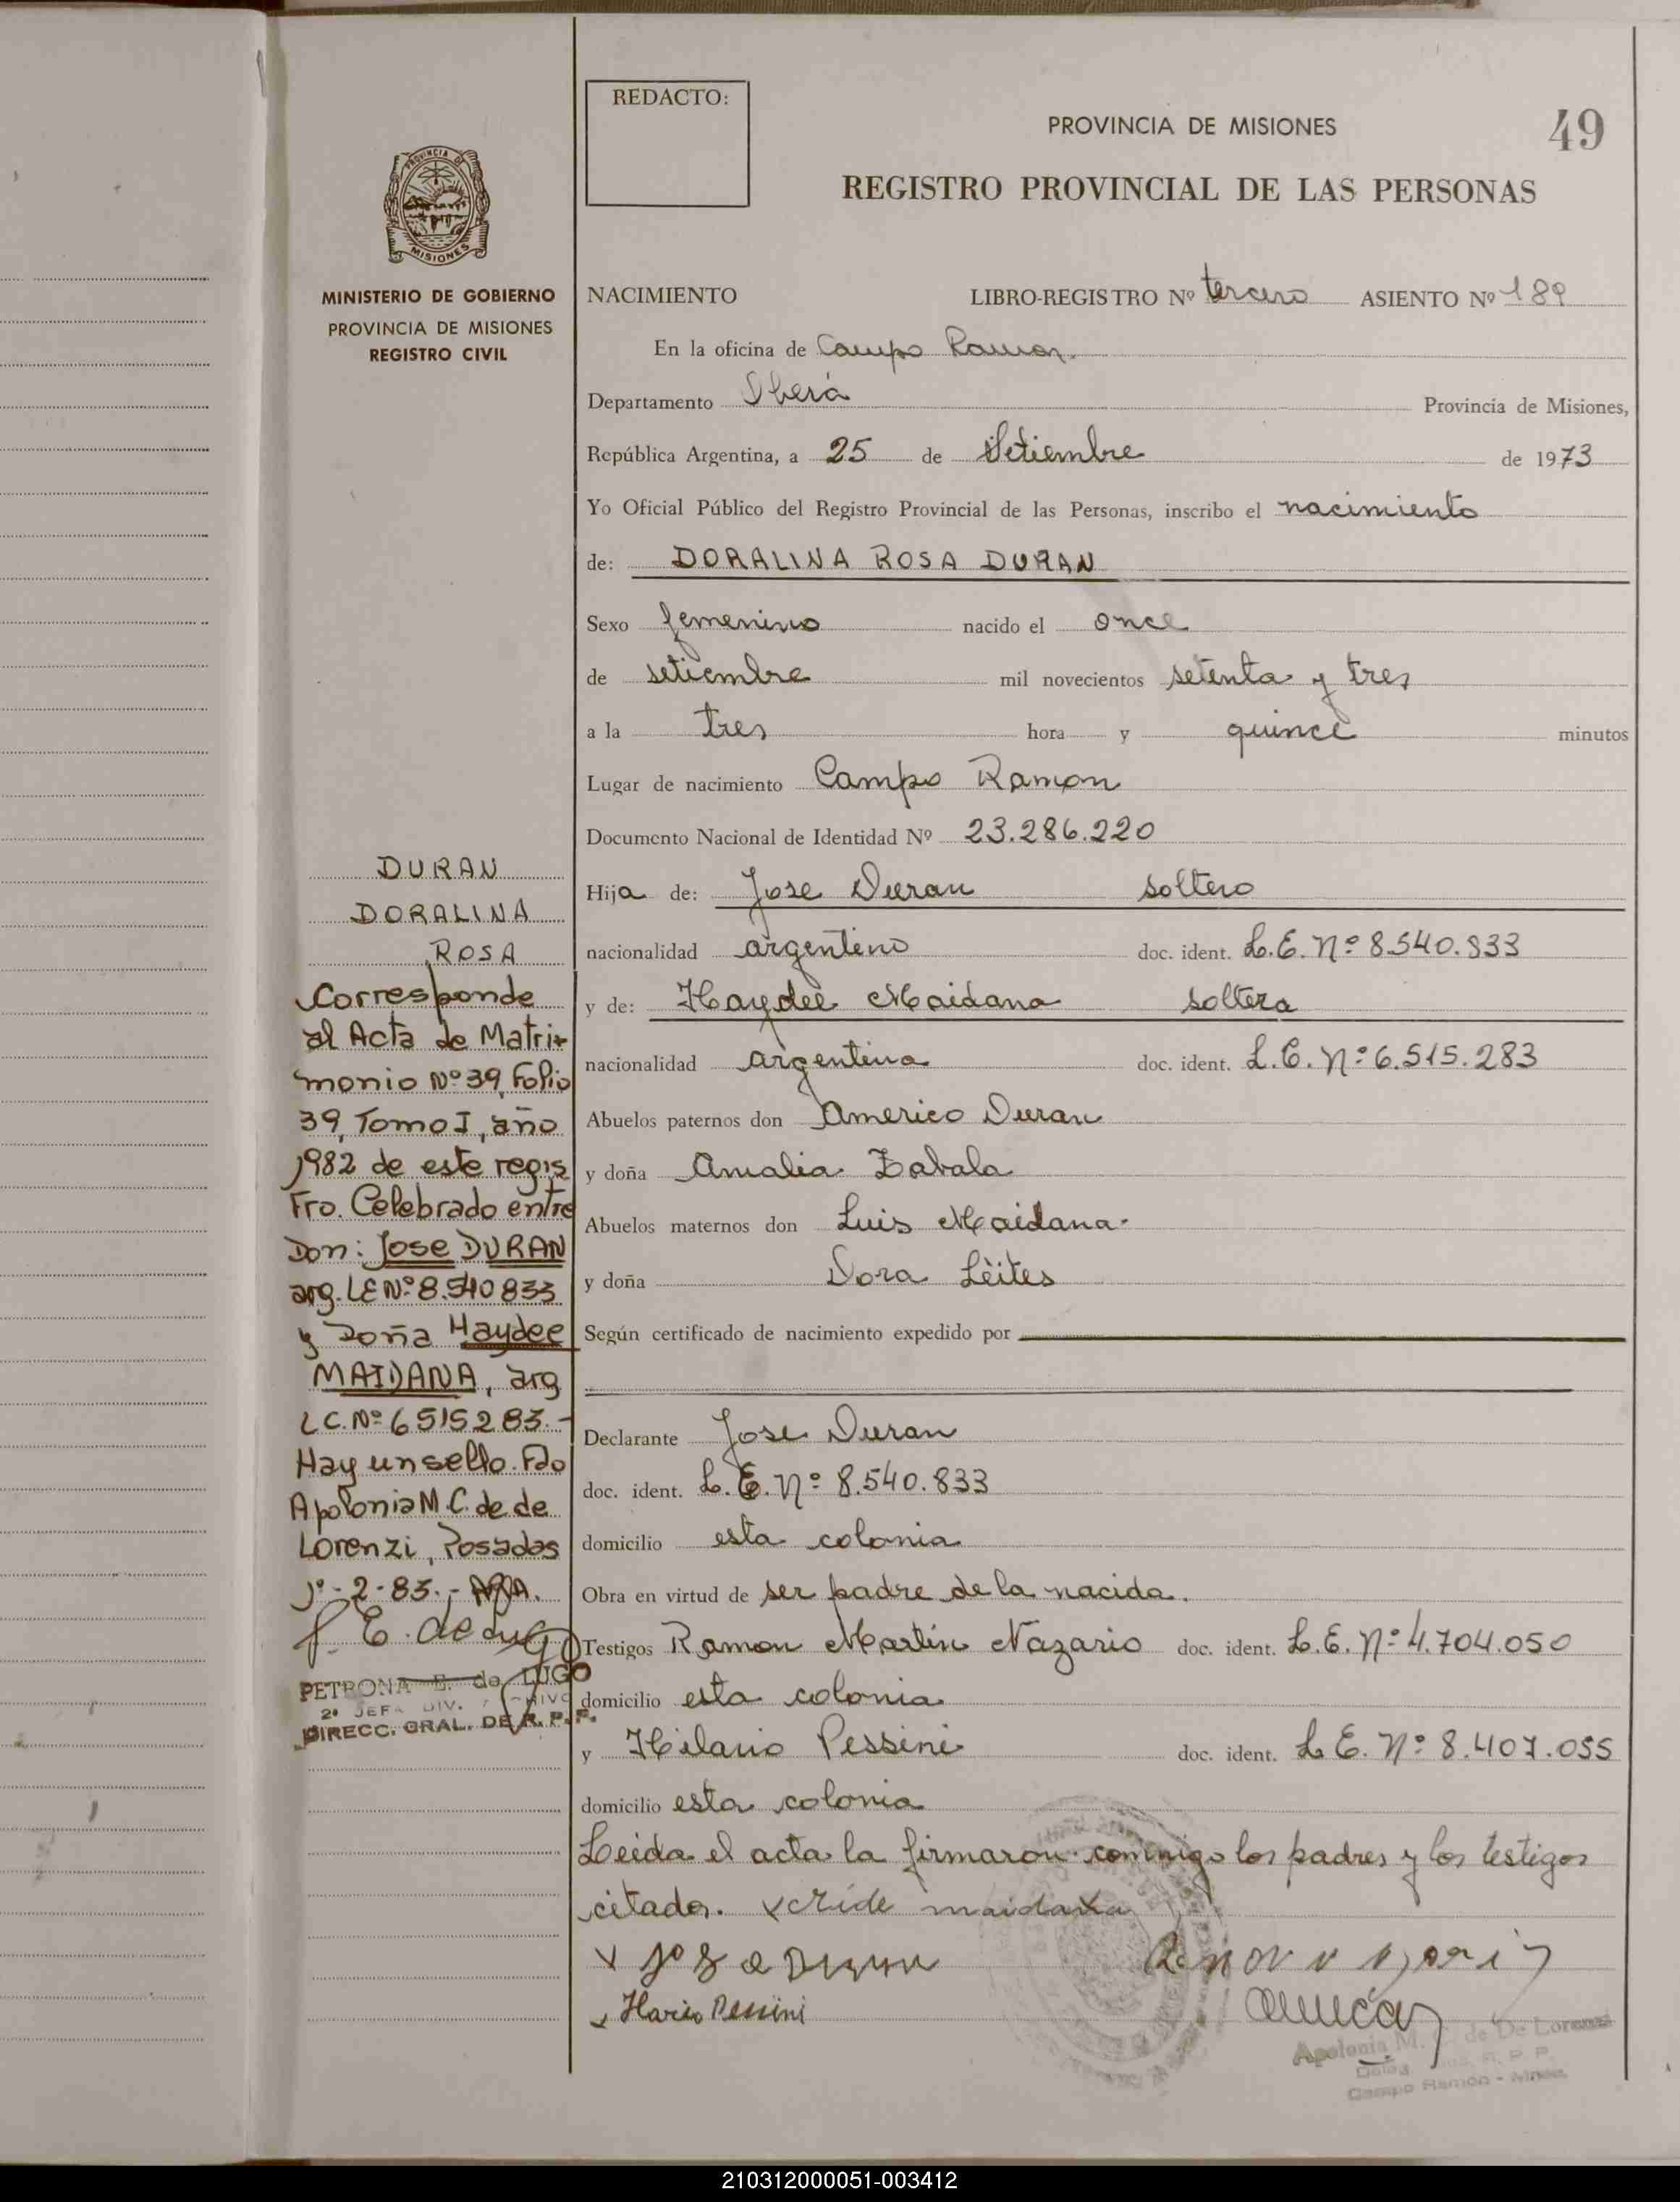 REDACTO:
PROVINCIA DE MISIONES
49
REGISTRO PROVINCIAL DE LAS PERSONAS
PROVINCIA DE
MISIONES
MINISTERIO DE GOBIERNO
PROVINCIA DE MISIONES
REGISTRO CIVIL
NACIMIENTO LIBRO-REGISTRO Nº tercero ASIENTO Nº 189
En la oficina de Campo Ramon.
Departamento Oberá Provincia de Misiones,
República Argentina, a 25 de Setiembre de 1973
Yo Oficial Público del Registro Provincial de las Personas, inscribo el nacimiento
de: DORALINA ROSA DURAN
Sexo femenino nacido el once
de setiembre mil novecientos setenta y tres
a la tres hora y quince minutos
Lugar de nacimiento Campo Ramon
Documento Nacional de Identidad Nº 23.286.220
Hija de: Jose Duran soltero
nacionalidad argentino doc. ident. L.E. Nº 8.540.833
y de: Haydeé Maidana soltera
nacionalidad argentina doc. ident. L.C. Nº 6.515.283
Abuelos paternos don Americo Duran
y doña Amalia Zabala
Abuelos maternos don Luis Maidana.
y doña Dora Leites
Según certificado de nacimiento expedido por
Declarante Jose Duran
doc. ident. L.E. Nº 8.540.833
domicilio esta colonia
Obra en virtud de ser padre de la nacida.
Testigos Ramon Martin Nazario doc. ident. L.E. Nº 4.704.050
domicilio esta colonia
y Hilario Pessini doc. ident. L.E. Nº 8.407.055
domicilio esta colonia
Leida el acta la firmaron conmigo los padres y los testigos
citados. x maidana
x Jose Duran
x Ilario Pessini
Apolonia M. C. de De Lorenzi
R. P. P.
Campo Ramón - Mnes.
DURAN
DORALINA
ROSA
Corresponde
al Acta de Matri-
monio Nº 39, Folio
39, Tomo I, año
1982 de este regis
tro. Celebrado entre
Don: Jose DURAN
arg. LE Nº 8.540833
y Doña Haydee
MAIDANA, arg
LC. Nº 6515283.-
Hay un sello. Fdo
Apolonia M.C. de de
Lorenzi, Posadas
1º-2-83.-
E. de Lugo
PETRONA E. de LUGO
2º JEFA DIV. ARCHIVO
DIRECC. GRAL. DE R. P. P.
210312000051-003412